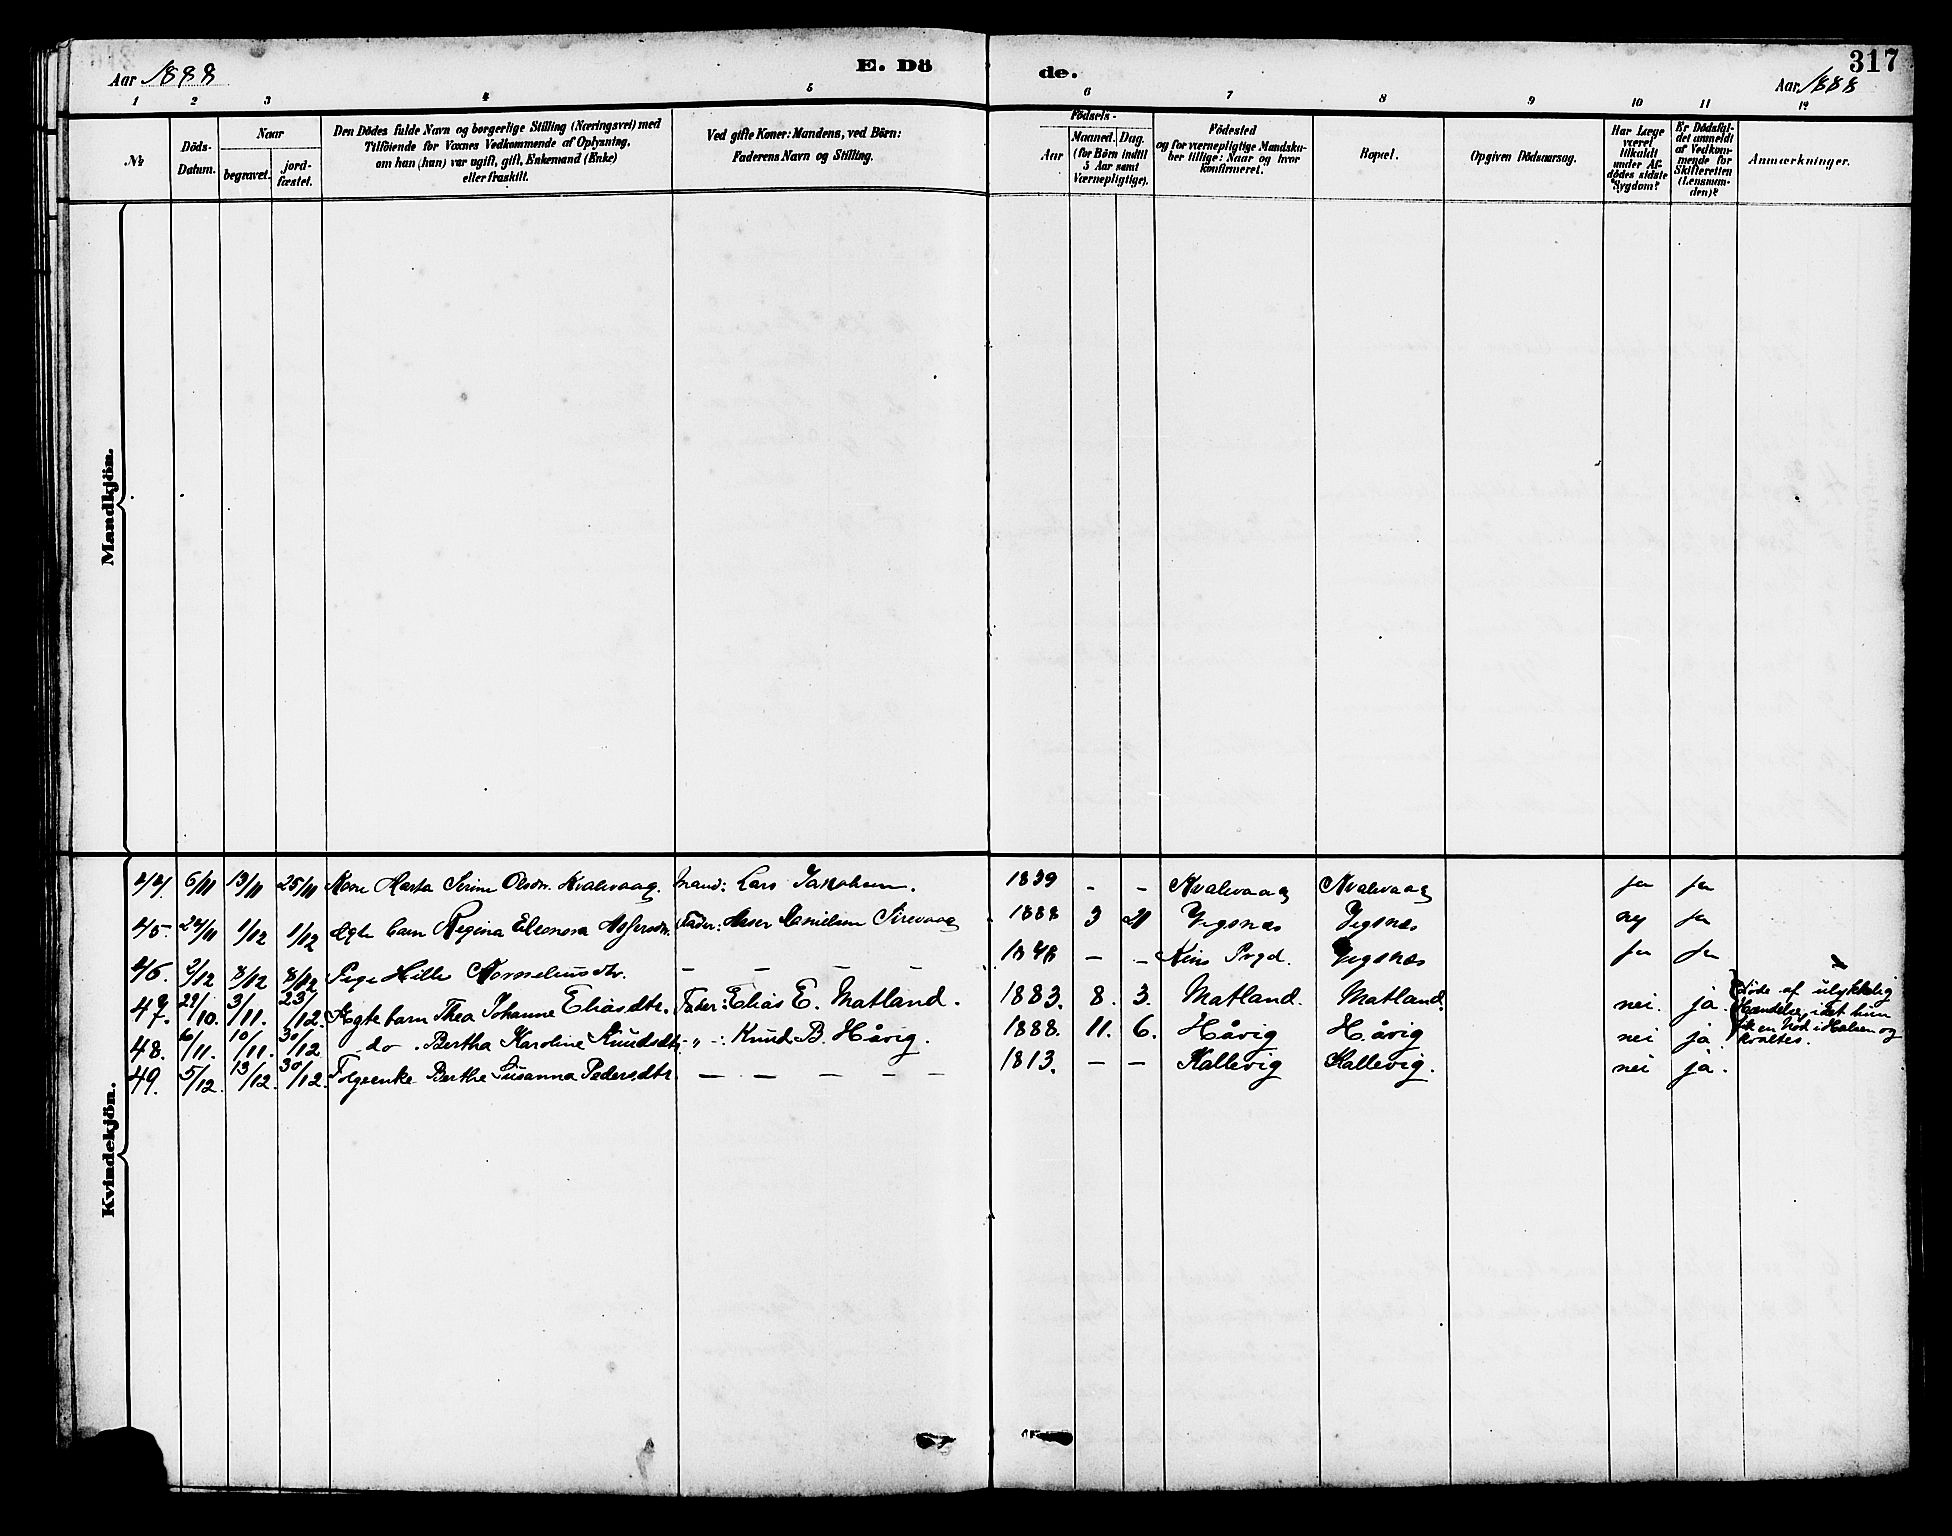 Aar 1888
E. Dö
de.
Aar 1888
317
1 2 3 4 5 6 7 8 9 10 11 12
№
Döds-
Datum.
Naar
begravet.
jord-
fæstet.
Den Dödes fulde Navn og borgerlige Stilling (Næringsvei) med
Tilföiende for Voxnes Vedkommende af Oplysning,
om han (hun) var ugift, gift, Enkemand (Enke)
eller fraskilt.
Ved gifte Koner: Mandens, ved Börn:
Faderens Navn og Stilling.
Födsels-
Aar
Maaned. Dag.
(for Börn indtil
5 Aar samt
Værnepligtige).
Födested
og for værnepligtige Mandska-
ber tillige: Naar og hvor
konfirmeret.
Bopæl.
Opgiven Dödsaarsag.
Har Læge
været
tilkaldt
under Af-
dödes sidste
Sygdom?
Er Dödsfal-
det anmeldt
af Vedkom-
mende for
Skifteretten
(Lensman-
den)?
Anmærkninger.
Mandkjön.
Kvindekjön.
44. 6/11 13/11 25/11 Kone Marta Serine Olsdtr. Kvalevaag. Mand: Lars Jakobsen. 1839 – – Kvalevaag Kvalevaag ja ja
45. 24/11 1/12 1/12 Ægte barn Regina Eleonora Fader: Danielsen 1888 3 21 Vigsnæs Vigsnæs ney ja
46. 2/12 8/12 8/12 Pige Hille Korneliusdtr. – – – – 1848 – – Prgd. Vigsnæs ja ja
47. 29/10. 3/11. 23/12. Ægte barn Thea Johanne Eliasdtr. Fader: Elias E. Matland. 1883. 8. 3. Matland. Matland. nei. ja.
Døde af ulykkelig
Hændelse, idet hun
fik en Nød i Halsen og
kvaltes.
48. 6/11. 10/11. 30/12 do. Bertha Karoline Knudsdtr. –„–: Knud B. Håvig. 1888. 11. 6. Håvig Håvig nei ja.
49. 5/12. 13/12. 30/12. Føgeenke Berthe Susanna Pedersdtr. – – – – – 1813. – – Kallevig Kallevig. nei ja.